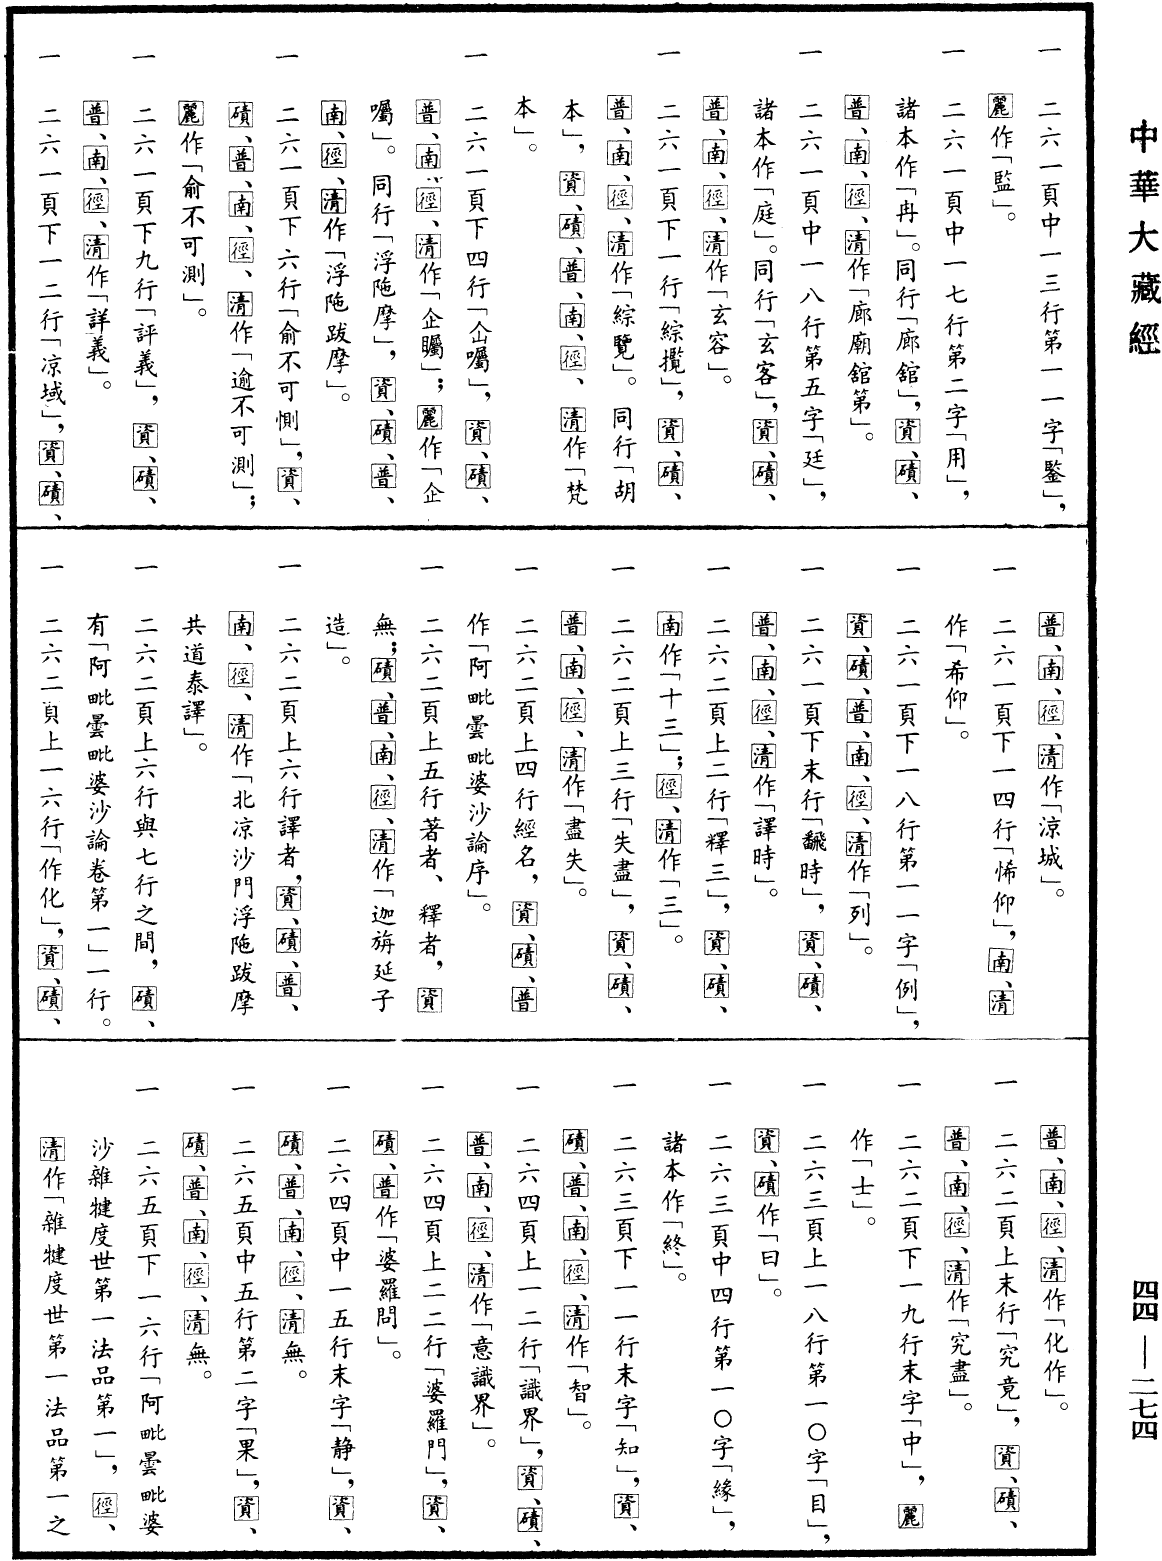 中華大藏經
四四—二七四
一 二六一頁中一三行第一一字「鑒」，
麗作「監」。
一 二六一頁中一七行第二字「用」，
諸本作「冉」。同行「廊舘」，資、磧、
普、南、徑、清作「廊廟舘第」。
一 二六一頁中一八行第五字「廷」，
諸本作「庭」。同行「玄客」，資、磧、
普、南、徑、清作「玄容」。
一 二六一頁下一行「綜攬」，資、磧、
普、南、徑、清作「綜覽」。同行「胡
本」，資、磧、普、南、徑、清作「梵
本」。
一 二六一頁下四行「仚囑」，資、磧、
普、南、徑、清作「企矚」；麗作「企
囑」。同行「浮陁摩」，資、磧、普、
南、徑、清作「浮陁跋摩」。
一 二六一頁下六行「俞不可惻」，資、
磧、普、南、徑、清作「逾不可測」；
麗作「俞不可測」。
一 二六一頁下九行「評義」，資、磧、
普、南、徑、清作「詳義」。
一 二六一頁下一二行「凉域」，資、磧、
普、南、徑、清作「涼城」。
一 二六一頁下一四行「悕仰」，南、清
作「希仰」。
一 二六一頁下一八行第一一字「例」，
資、磧、普、南、徑、清作「列」。
一 二六一頁下末行「飜時」，資、磧、
普、南、徑、清作「譯時」。
一 二六二頁上二行「釋三」，資、磧、
南作「十三」；徑、清作「三」。
一 二六二頁上三行「失盡」，資、磧、
普、南、徑、清作「盡失」。
一 二六二頁上四行經名，資、磧、普
作「阿毗曇毗婆沙論序」。
一 二六二頁上五行著者、釋者，資
無；磧、普、南、徑、清作「迦旃延子
造」。
一 二六二頁上六行譯者，資、磧、普、
南、徑、清作「北凉沙門浮陁跋摩
共道泰譯」。
一 二六二頁上六行與七行之間，磧、
有「阿毗曇毗婆沙論卷第一」一行。
一 二六二頁上一六行「作化」，資、磧、
普、南、徑、清作「化作」。
一 二六二頁上末行「究竟」，資、磧、
普、南、徑、清作「究盡」。
一 二六二頁下一九行末字「中」，麗
作「士」。
一 二六三頁上一八行第一〇字「目」，
資、磧作「曰」。
一 二六三頁中四行第一〇字「緣」，
諸本作「終」。
一 二六三頁下一一行末字「知」，資、
磧、普、南、徑、清作「智」。
一 二六四頁上一二行「識界」，資、磧、
普、南、徑、清作「意識界」。
一 二六四頁上二二行「婆羅門」，資、
磧、普作「婆羅問」。
一 二六四頁中一五行末字「静」，資、
磧、普、南、徑、清無。
一 二六五頁中五行第二字「果」，資、
磧、普、南、徑、清無。
一 二六五頁下一六行「阿毗曇毗婆
沙雜犍度世第一法品第一」，徑、
清作「雜犍度世第一法品第一之